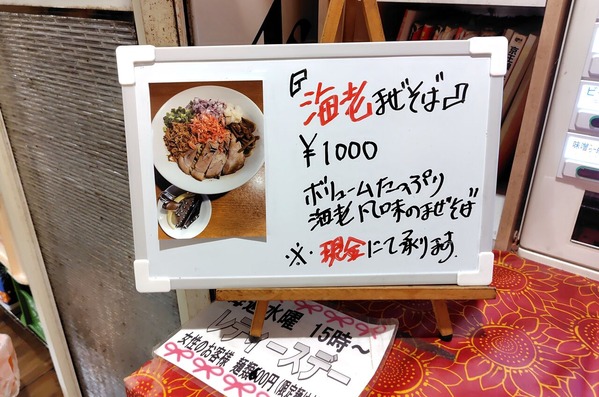 『海老まぜそば』
¥1000
ボリュームたっぷり
海老風味のまぜそば
※現金にて承ります。
水曜 15時～
レディースデー
女性のお客様 麺類